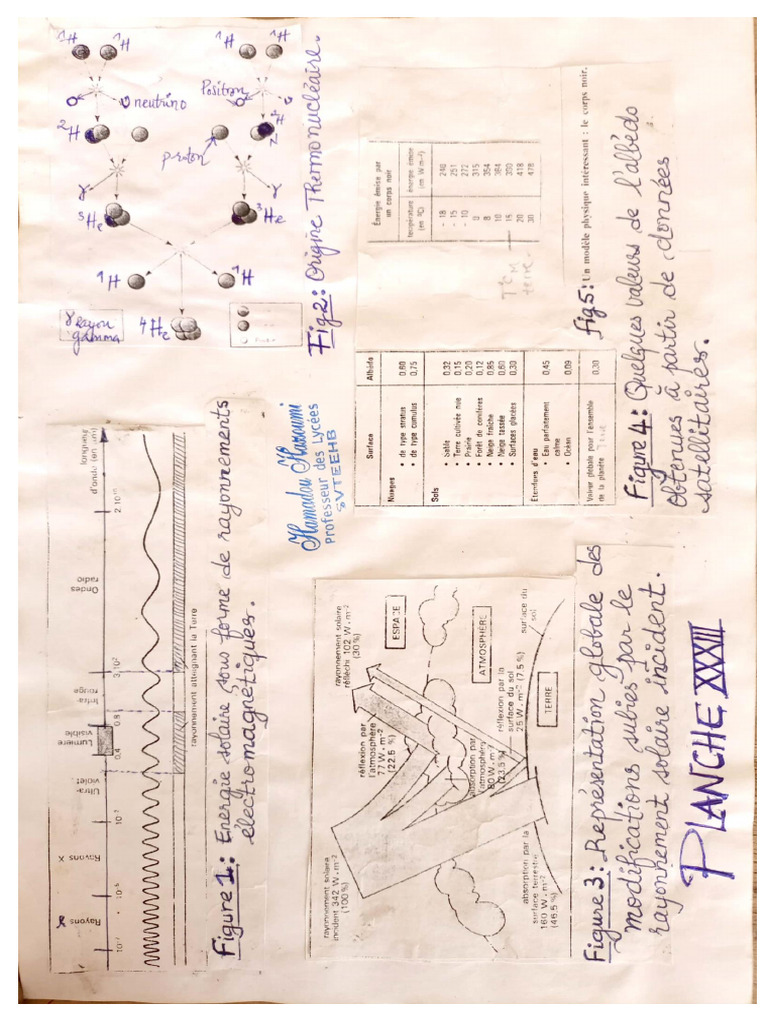 10⁻⁷
10⁻⁵
10⁻²
0,4
0,8
3.10²
2.10¹⁰
longueur
d'onde (en µm)
Rayons γ
Rayons X
Ultra-
violet
Lumière
visible
Infra
rouge
Ondes
radio
rayonnement atteignant la Terre
Figure 1: Energie solaire sous forme de rayonnements
électromagnétiques.
¹H
¹H
¹H
¹H
neutrino
Positron
²H
²H
proton
γ
γ
³He
³He
¹H
¹H
γ Rayon
gamma
4He
Fig2: Origine Thermonucléaire.
Hamadou Harouni
Professeur des Lycées
SVTEEHB
rayonnement solaire
incident 342 W.m⁻²
(100 %)
réflexion par
l'atmosphère
77 W.m⁻²
(22.5 %)
rayonnement solaire
réfléchi 102 W.m⁻²
(30 %)
ESPACE
ATMOSPHÈRE
absorption par
l'atmosphère
80 W.m⁻²
(23.5 %)
réflexion par la
surface du sol
25 W.m⁻² (7.5 %)
surface du
sol
TERRE
absorption par la
surface terrestre
160 W.m⁻²
(46.5 %)
Figure 3: Représentation globale des
modifications subies par le
rayonnement solaire incident.
Surface Albédo
Nuages • de type stratus 0,60
• de type cumulus 0,75
Sols • Sable 0,32
• Terre cultivée nue 0,15
• Prairie 0,20
• Forêt de conifères 0,12
• Neige fraîche 0,85
• Neige tassée 0,60
• Surfaces glacées 0,30
Étendues d'eau • Eau parfaitement
calme 0,45
• Océan 0,09
Valeur globale pour l'ensemble
de la planète Terre 0,30
Figure 4: Quelques valeurs de l'albédo
obtenues à partir de données
satellitaires.
Énergie émise par
un corps noir
température
(en °C)
énergie émise
(en W.m⁻²)
- 18 240
- 15 251
- 10 272
0 315
8 354
10 364
15 390
20 418
30 478
T°C M
terre
Fig5: Un modèle physique intéressant : le corps noir.
PLANCHE XXXIII